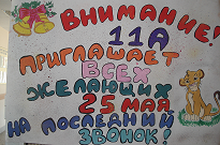 ВНИМАНИЕ!
11А
ПРИГЛАШАЕТ
ВСЕХ
ЖЕЛАЮЩИХ
25 МАЯ
НА ПОСЛЕДНИЙ
ЗВОНОК!